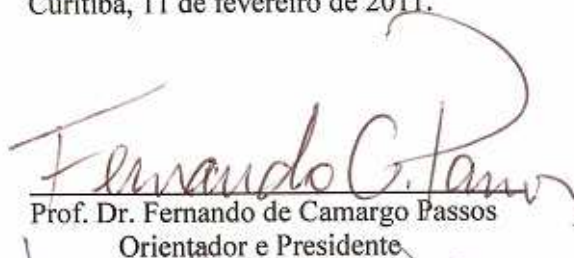 Curitiba, 11 de fevereiro de 2011.
Fernando C. Passos
Prof. Dr. Fernando de Camargo Passos
Orientador e Presidente